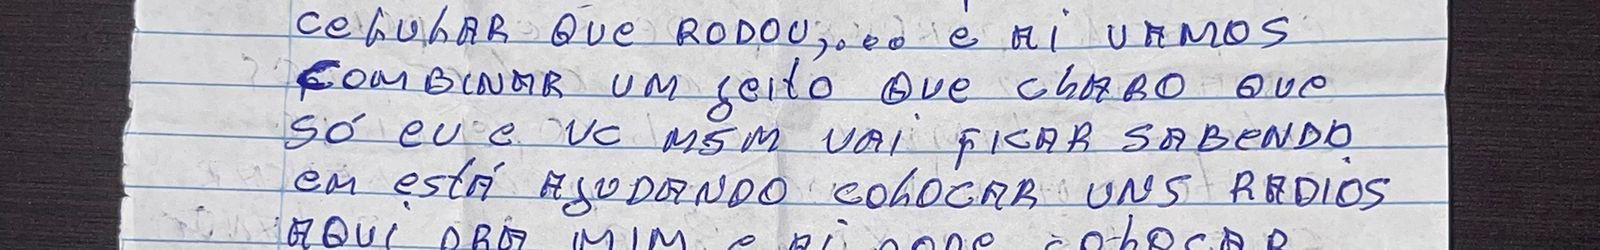 CELULAR QUE RODOU,... e AI VAMOS
COMBINAR UM geito QUE CLARO QUE
SÓ EU E VC MSM VAI FICAR SABENDO
em está AJUDANDO COLOCAR UNS RADIOS
AQUI PRA MIM e AI PODE COLOCAR